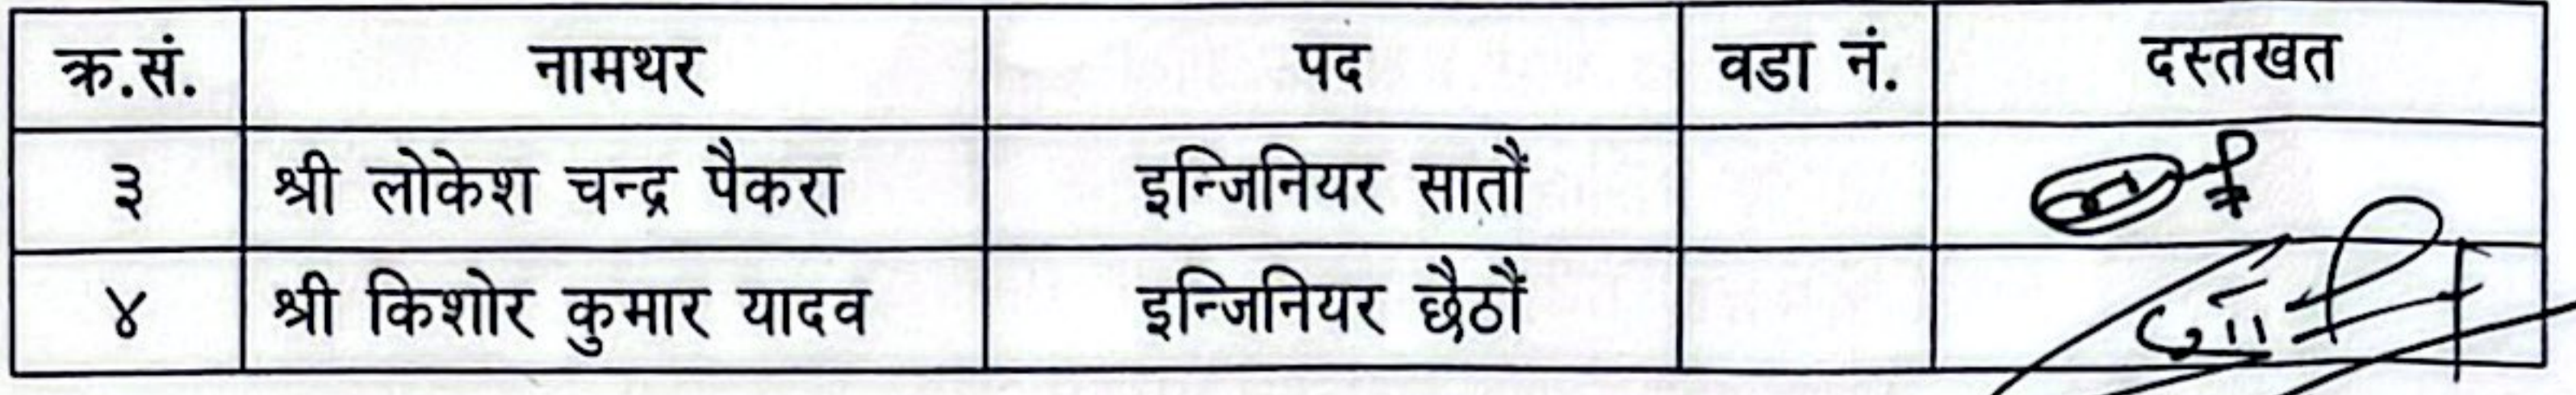 क्र.सं. नामथर पद वडा नं. दस्तखत
३ श्री लोकेश चन्द्र पैकरा इन्जिनियर सातौं
४ श्री किशोर कुमार यादव इन्जिनियर छैठौं